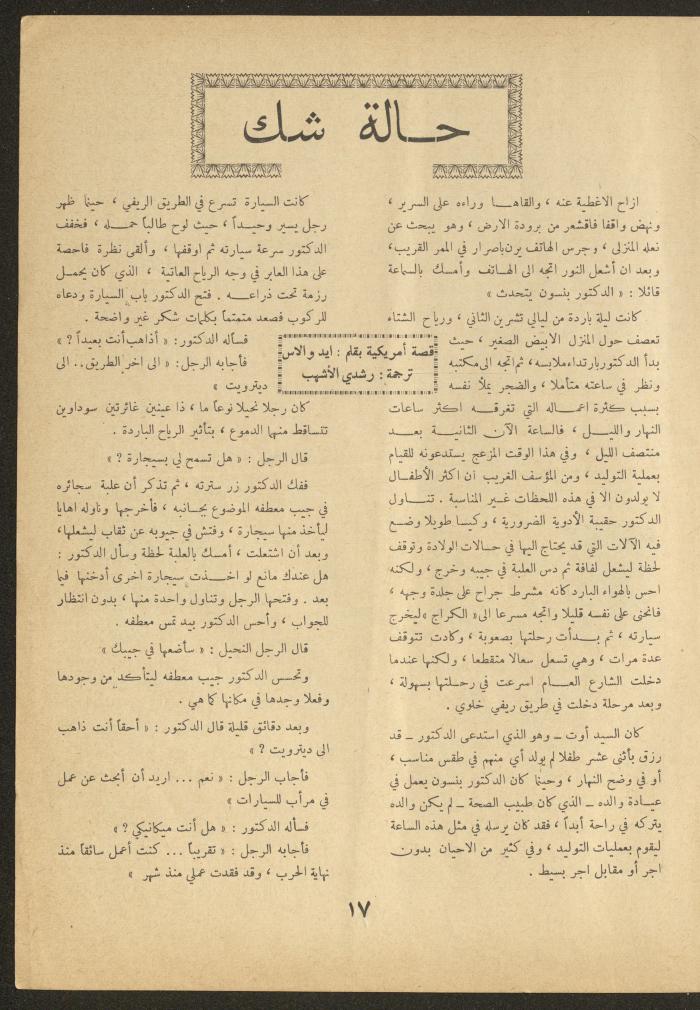 حالة شك
ازاح الاغطية عنه ، والقاهـا وراءه على السرير ،
ونهض واقفا فاقشعر من برودة الارض ، وهو يبحث عن
نعله المنزلي ، وجرس الهاتف يرن باصرار في الممر القريب،
وبعد ان أشعل النور اتجه الى الهاتف وأمسك بالسماعة
قائلا : « الدكتور بنسون يتحدث »
كانت ليلة باردة من ليالي تشرين الثاني ، ورياح الشتاء
تعصف حول المنزل الأبيض الصغير ، حيث
بدأ الدكتور بارتداء ملابسه ، ثم اتجه الى مكتبه
ونظر في ساعته متأملا ، والضجر يملأ نفسه
بسبب كثرة اعماله التي تغرقه اكثر ساعات
النهار والليل ، فالساعة الآن الثانية بعد
منتصف الليل ، وفي هذا الوقت المزعج يستدعونه للقيام
بعملية التوليد ، ومن المؤسف الغريب ان اكثر الأطفال
لا يولدون الا في هذه اللحظات غير المناسبة . تناول
الدكتور حقيبة الأدوية الضرورية ، وكيسا طويلا وضع
فيه الآلات التي قد يحتاج اليها في حالات الولادة وتوقف
لحظة ليشعل لفافة ثم دس العلبة في جيبه وخرج ، ولكنه
احس بالهواء البارد كانه مشرط جراح على جلدة وجهه ،
فانحنى على نفسه قليلا واتجه مسرعا الى « الكراج » ليخرج
سيارته ، ثم بدأت رحلتها بصعوبة ، وكادت تتوقف
عدة مرات ، وهي تسعل سعالا متقطعا ، ولكنها عندما
دخلت الشارع العام اسرعت في رحلتها بسهولة ،
وبعد مرحلة دخلت في طريق ريفي خلوي .
كان السيد أوت ـ وهو الذي استدعى الدكتور ـ قد
رزق بأثنى عشر طفلا لم يولد أي منهم في طقس مناسب ،
أو في وضح النهار ، وحينما كان الدكتور بنسون يعمل في
عيادة والده ـ الذي كان طبيب الصحة ـ لم يكن والده
يتركه في راحة أبداً ، فقد كان يرسله في مثل هذه الساعة
ليقوم بعمليات التوليد ، وفي كثير من الاحيان بدون
اجر أو مقابل اجر بسيط .
قصة أمريكية بقلم : ايد والاس
ترجمة : رشدي الأشهب
كانت السيارة تسرع في الطريق الريفي ، حينما ظهر
رجل يسير وحيداً ، حيث لوح طالباً حمله ، فخفف
الدكتور سرعة سيارته ثم اوقفها ، وألقى نظرة فاحصة
على هذا العابر في وجه الرياح العاتية ، الذي كان يحمل
رزمة تحت ذراعه . فتح الدكتور باب السيارة ودعاه
للركوب فصعد متمتماً بكلمات شكر غير واضحة .
فسأله الدكتور: « أذاهب أنت بعيداً ؟ »
فأجابه الرجل: « الى اخر الطريق.. الى
ديترويت »
كان رجلا نحيلا نوعاً ما ، ذا عينين غائرتين سوداوين
تتساقط منها الدموع ، بتأثير الرياح الباردة .
قال الرجل : « هل تسمح لي بسيجارة ؟ »
ففك الدكتور زر سترته ، ثم تذكر أن علبة سجائره
في جيب معطفه الموضوع بجانبه ، فأخرجها وناوله اهايا
ليأخذ منها سيجارة ، وفتش في جيوبه عن ثقاب ليشعلها،
وبعد أن اشتعلت ، أمسك بالعلبة لحظة وسأل الدكتور :
هل عندك مانع لو اخذت سيجارة اخرى أدخنها فيما
بعد . وفتحها الرجل وتناول واحدة منها ، بدون انتظار
للجواب ، وأحس الدكتور بيد تمس معطفه .
قال الرجل النحيل : « سأضعها في جيبك »
وتحسس الدكتور جيب معطفه ليتأكد من وجودها
وفعلا وجدها في مكانها كما هي .
وبعد دقائق قليلة قال الدكتور : « أحقاً أنت ذاهب
الى ديترويت ؟ »
فأجاب الرجل : « نعم ... اريد أن أبحث عن عمل
في مرأب للسيارات »
فسأله الدكتور : « هل أنت ميكانيكي ؟ »
فأجابه الرجل : « تقريباً ... كنت أعمل سائقاً منذ
نهاية الحرب ، وقد فقدت عملي منذ شهر »
١٧